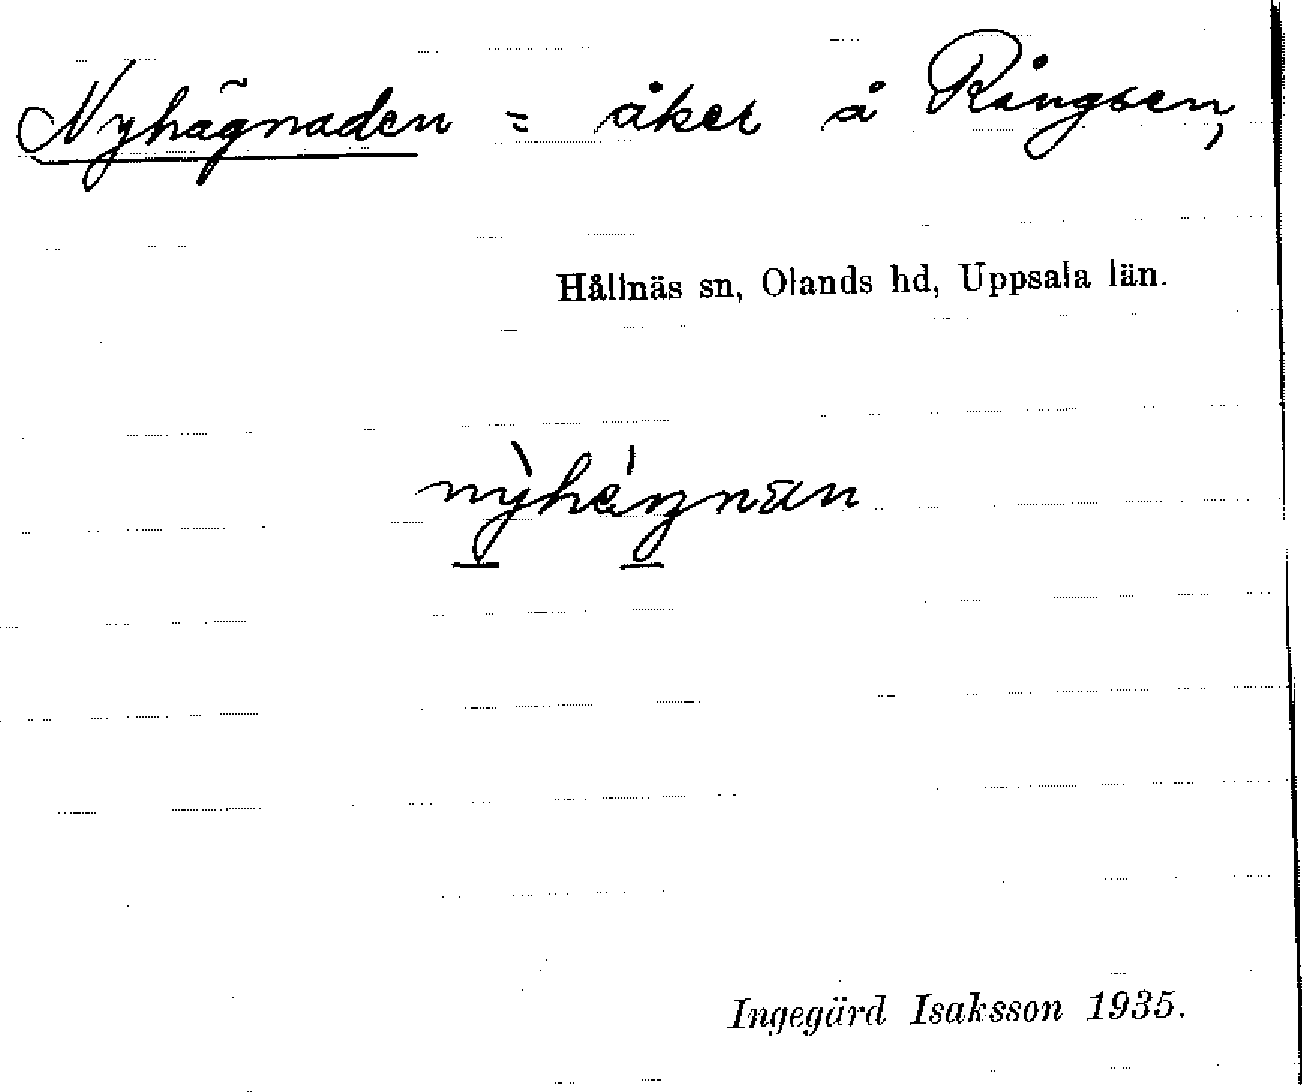 Nyhägnaden = åker å Rångsen,
Hållnäs sn, Olands hd, Uppsala län.
Ingegärd Isaksson 1935.